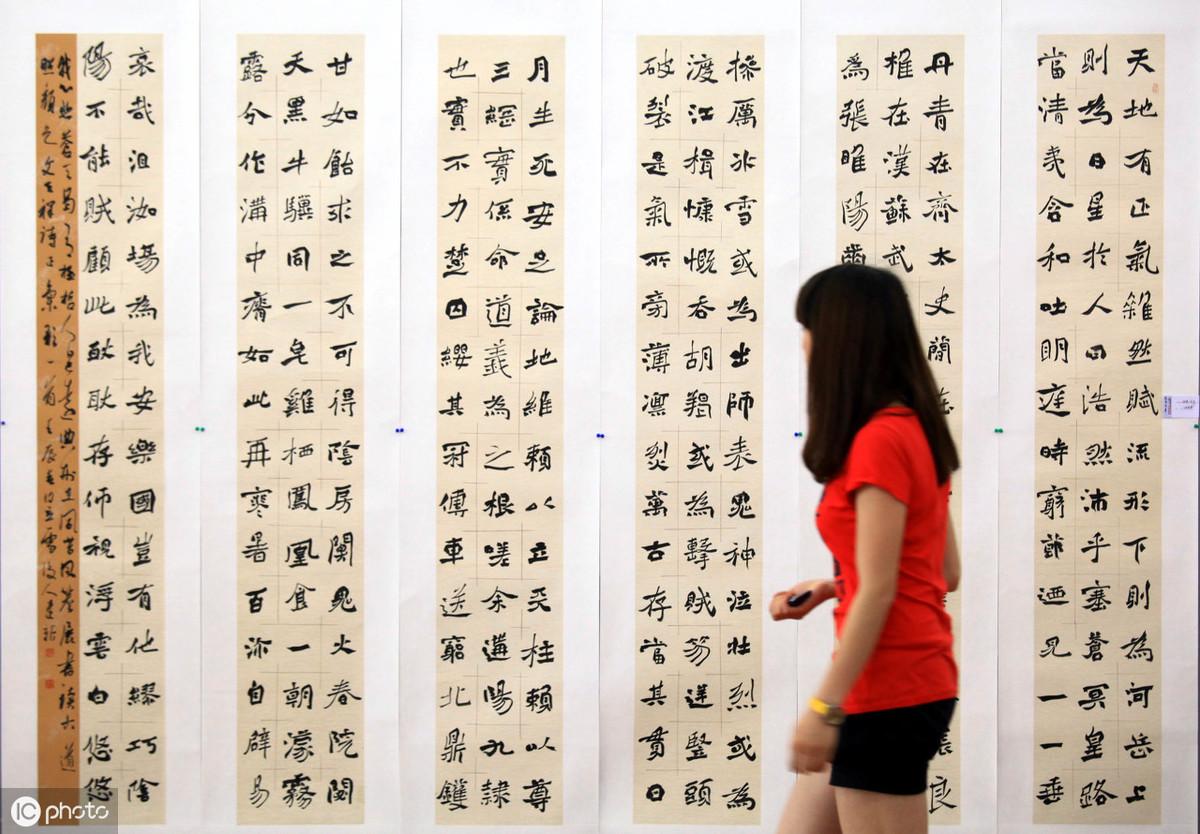 天地有正氣雜然賦流形下則為河岳上
則為日星於人曰浩然沛乎塞蒼冥皇路
當清夷含和吐明庭時窮節迺見一一垂
丹青在齊太史簡在
良
椎在漢蘇武
為張睢陽齒
操厲冰雪或為出師表鬼神泣壯烈或為
渡江楫慷慨吞胡羯或為擊賊笏逆豎頭
破裂是氣所旁薄凛烈萬古存當其貫日
月生死安足論地維賴以立天柱賴以尊
三綱實係命道義為之根嗟余遘陽九隸
也實不力楚囚纓其冠傳車送窮北鼎鑊
甘如飴求之不可得陰房闃鬼火春院閟
天黑牛驥同一皂雞栖鳳凰食一朝濛霧
露分作溝中瘠如此再寒暑百沴自辟易
哀哉沮洳場為我安樂國豈有他繆巧陰
陽不能賊顧此耿耿存仰視浮雲白悠悠
我心悲蒼天曷有極哲人日已遠典刑在夙昔風簷展書讀古道
照顏色文天祥詩正氣歌一首
IC photo